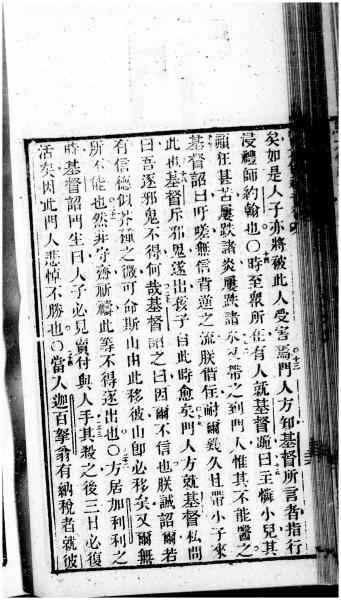 矣如是人子亦將被此人受害焉門人方知基督所言者指行
浸禮師約翰也〇時至眾所在有人就基督跪曰主憐小兒其
顛狂甚苦屢跌諸炎屢跌諸水吾帶之到門人惟其不能醫之
基督詔曰吁嗟無信背逆之流朕偕侄耐爾幾久且帶小子來
此也基督斥邪鬼遂出孩子自此時愈矣門人方就基督私問
曰吾逐邪鬼不得何哉基督詔之曰因爾不信也朕誠詔爾若
有信德似芥種之微可命斯山由此移彼山即必移矣又爾無
所不能也然非守齋祈禱此等不得逐出也〇方居加利利之
時基督詔門生曰人子必見賣付與人手其殺之後三日必復
活矣因此門人悲悼不勝也〇當入迦百拏翁有納稅者就彼